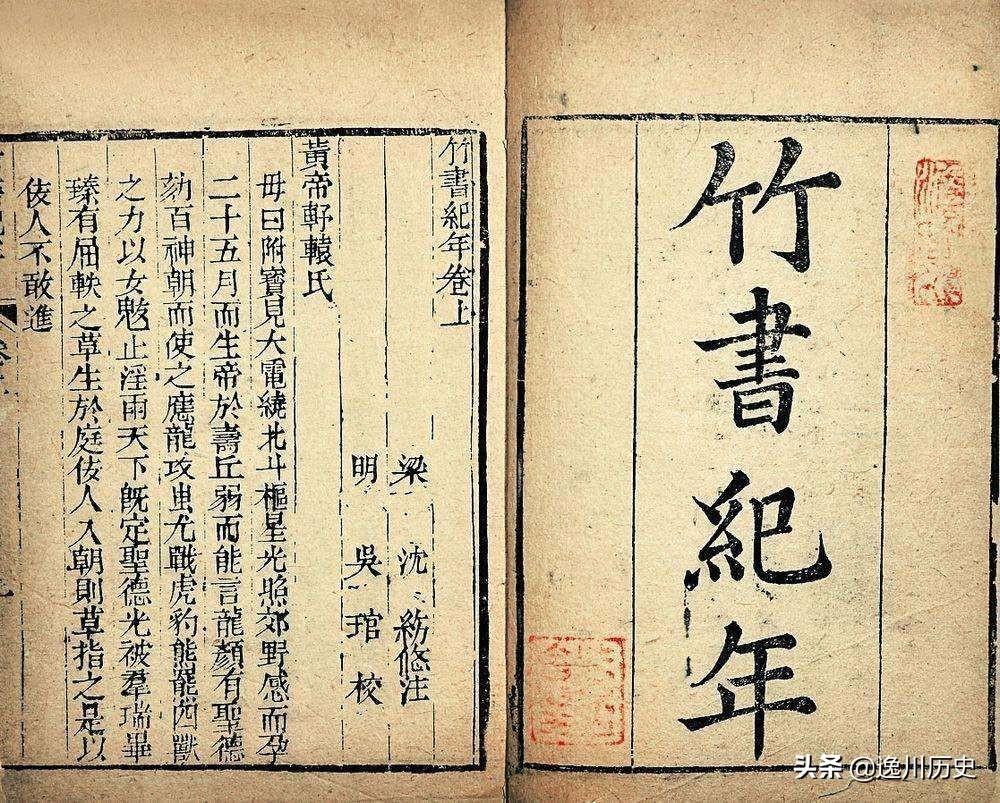 竹書紀年
竹書紀年卷上
梁 沈 注
明 吳 琯 校
黃帝軒轅氏
母曰附寶見大電繞北斗樞星光照郊野感而孕
二十五月而生帝於壽丘弱而能言龍顏有聖德
劾百神朝而使之應龍攻蚩尤戰虎豹熊羆四獸
之力以女魃止淫雨天下既定聖德光被羣瑞畢
臻有屈軼之草生於庭佞人入朝則草指之是以
佞人不敢進
头条 @逸川历史